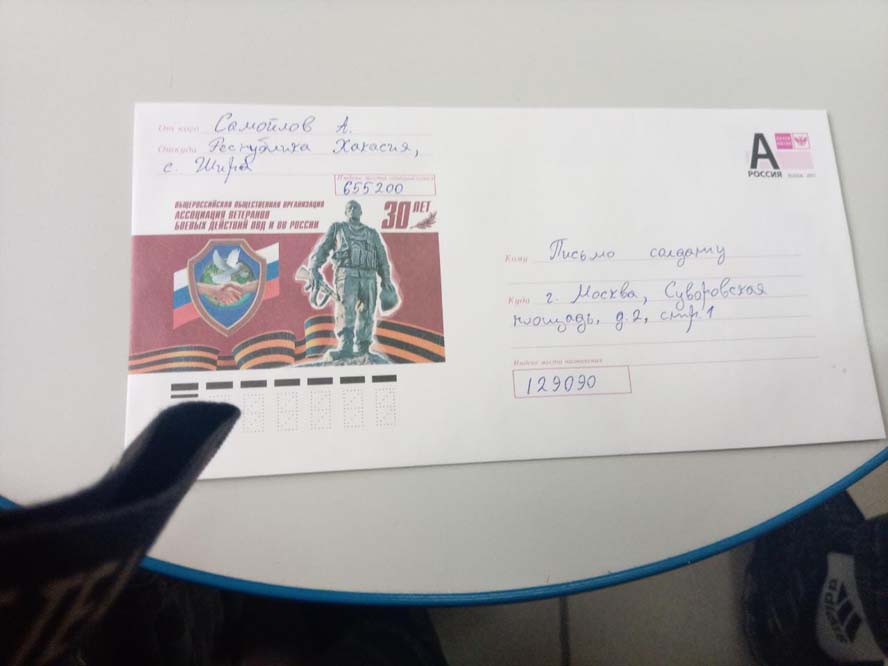 От кого Самойлов А.
Откуда Республика Хакасия,
с. Шира
655200
ОБЩЕРОССИЙСКАЯ ОБЩЕСТВЕННАЯ ОРГАНИЗАЦИЯ
АССОЦИАЦИЯ ВЕТЕРАНОВ
БОЕВЫХ ДЕЙСТВИЙ ОВД И ВВ РОССИИ
30 ЛЕТ
А
РОССИЯ
Кому Письмо солдату
Куда г. Москва, Суворовская
площадь, д.2, стр.1
Индекс места назначения
129090
adidas